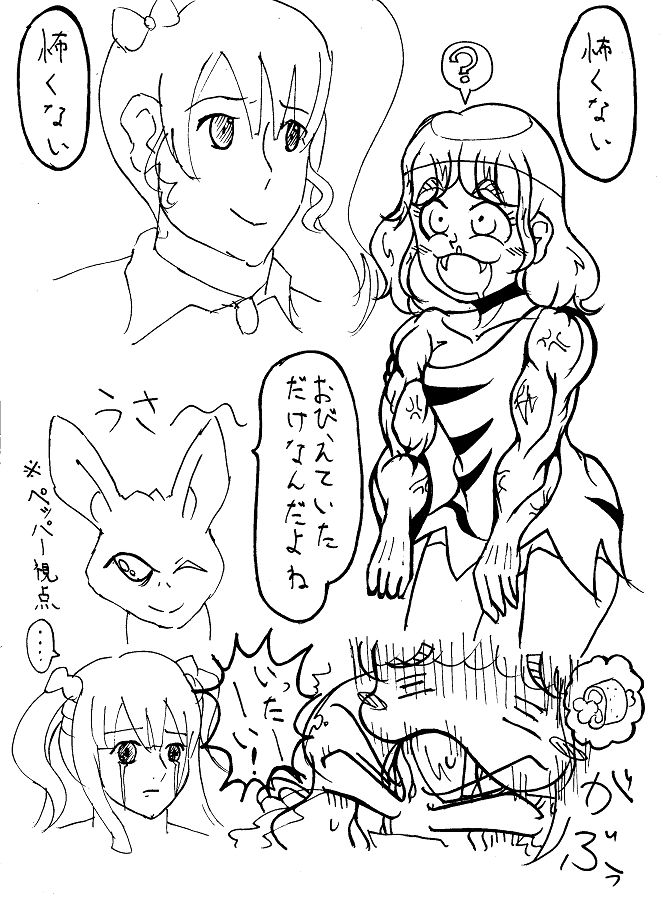 怖くない
?
怖くない
おびえていた
だけなんだよね
うさ〜〜
※ペッパー視点
…
いったい!
がぶぅ